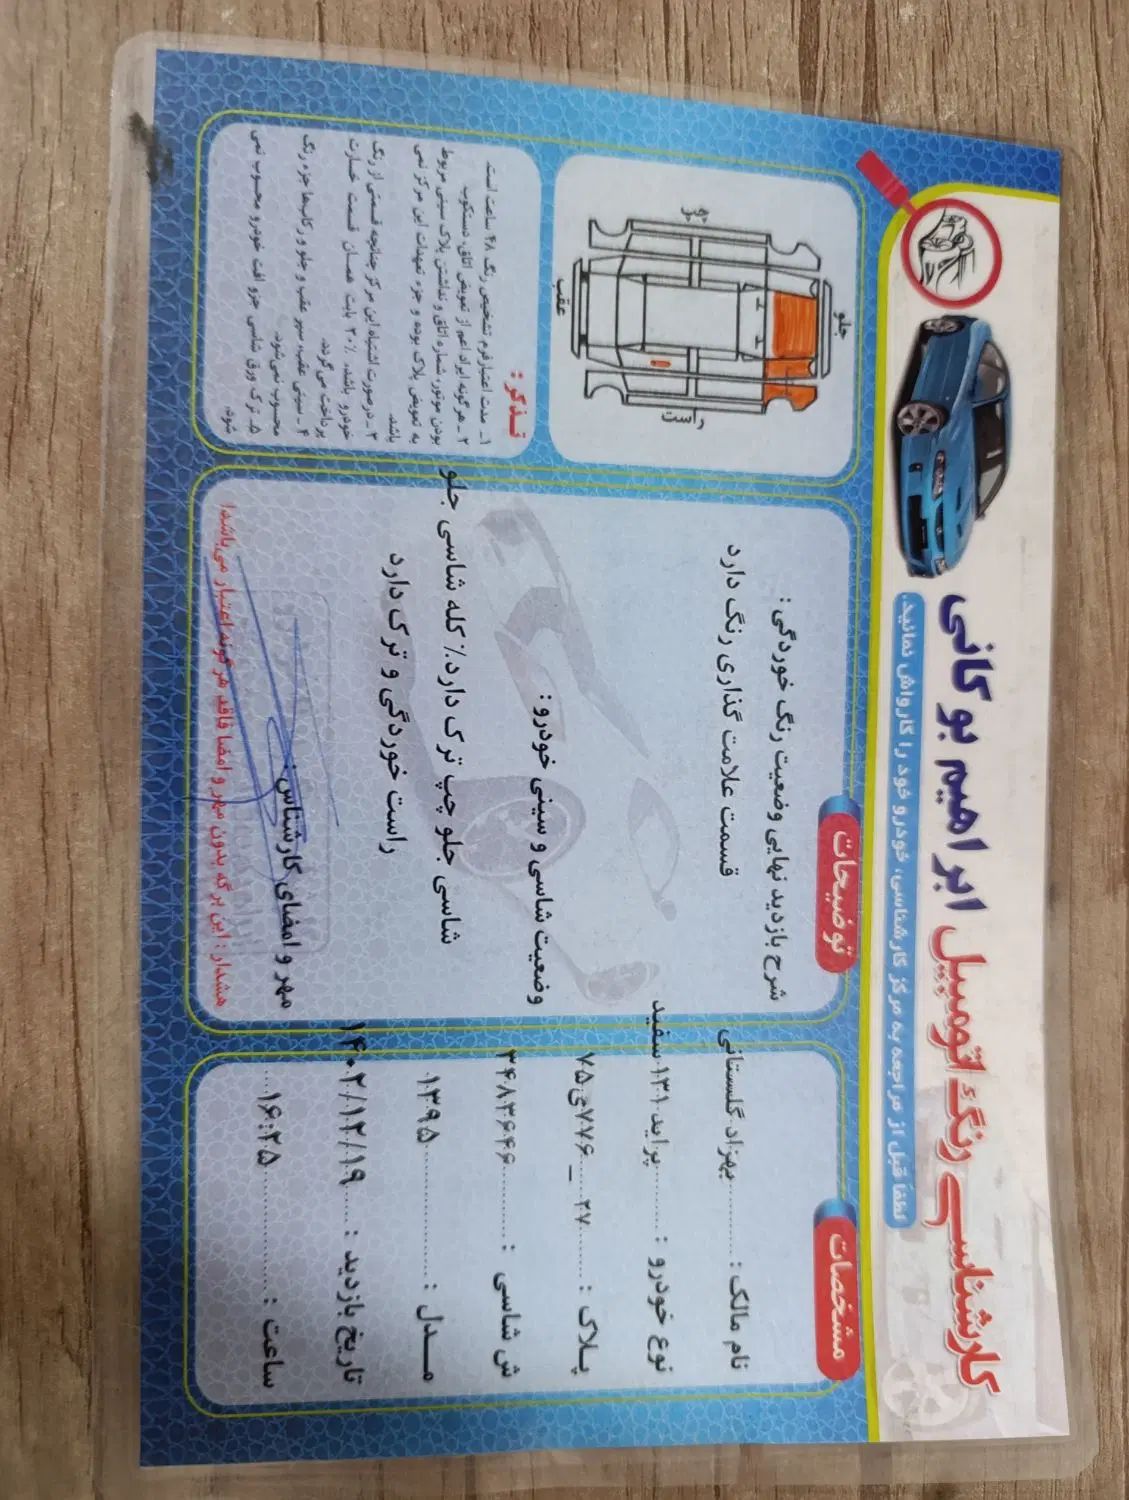 کارشناسی رنگ اتومبیل ابراهیم بوکانی
لطفا قبل از مراجعه به مرکز کارشناسی، خودرو خود را کارواش نمائید.
مشخصات
نام مالک : ........ بهزاد گلستانی
نوع خودرو : ........ پراید ۱۳۱ سفید
پلاک : ........ ۲۷ _ ۷۷۶ی۷۵
ش شاسی : ........ ۳۴۸۳۶۴۶
مــدل : ........ ۱۳۹۵
تاریخ بازدید : ..... ۱۴۰۲/۱۲/۱۹
ساعت : ........ ۱۶:۲۵ ....
توضیحات
شرح بازدید نهایی وضعیت رنگ خوردگی :
قسمت علامت گذاری رنگ دارد
وضعیت شاسی و سینی خودرو :
شاسی جلو چپ ترک دارد٪ کله شاسی جلو
راست خوردگی و ترک دارد
مهر و امضای کارشناس :
هشدار : این برگه بدون مهر و امضا فاقد هرگونه اعتبار می‌باشد!
جلو
چپ
راست
عقب
تـذکر :
۱ـ مدت اعتبار فرم تشخیص رنگ ۴۸ ساعت است.
۲ ـ هرگونه ایراد اعم از تعویض اتاق، دستکوب
بودن موتور، شماره اتاق و نداشتن پلاک سینی مربوط
به تعویض پلاک بوده و جزء تعهدات این مرکز نمی
باشد.
۳ ـ درصورت اشتباه این مرکز چنانچه قسمتی از رنگ
خودرو باشد، ۲۰٪ بابت همان قسمت خسارت
پرداخت می‌گردد.
۴ ـ سینی عقب، سپر عقب و جلو و رکاب‌ها جزء رنگ
محسوب نمی‌شود.
۵ـ ترک ورق شاسی جزو افت خودرو محسوب نمی
شود.